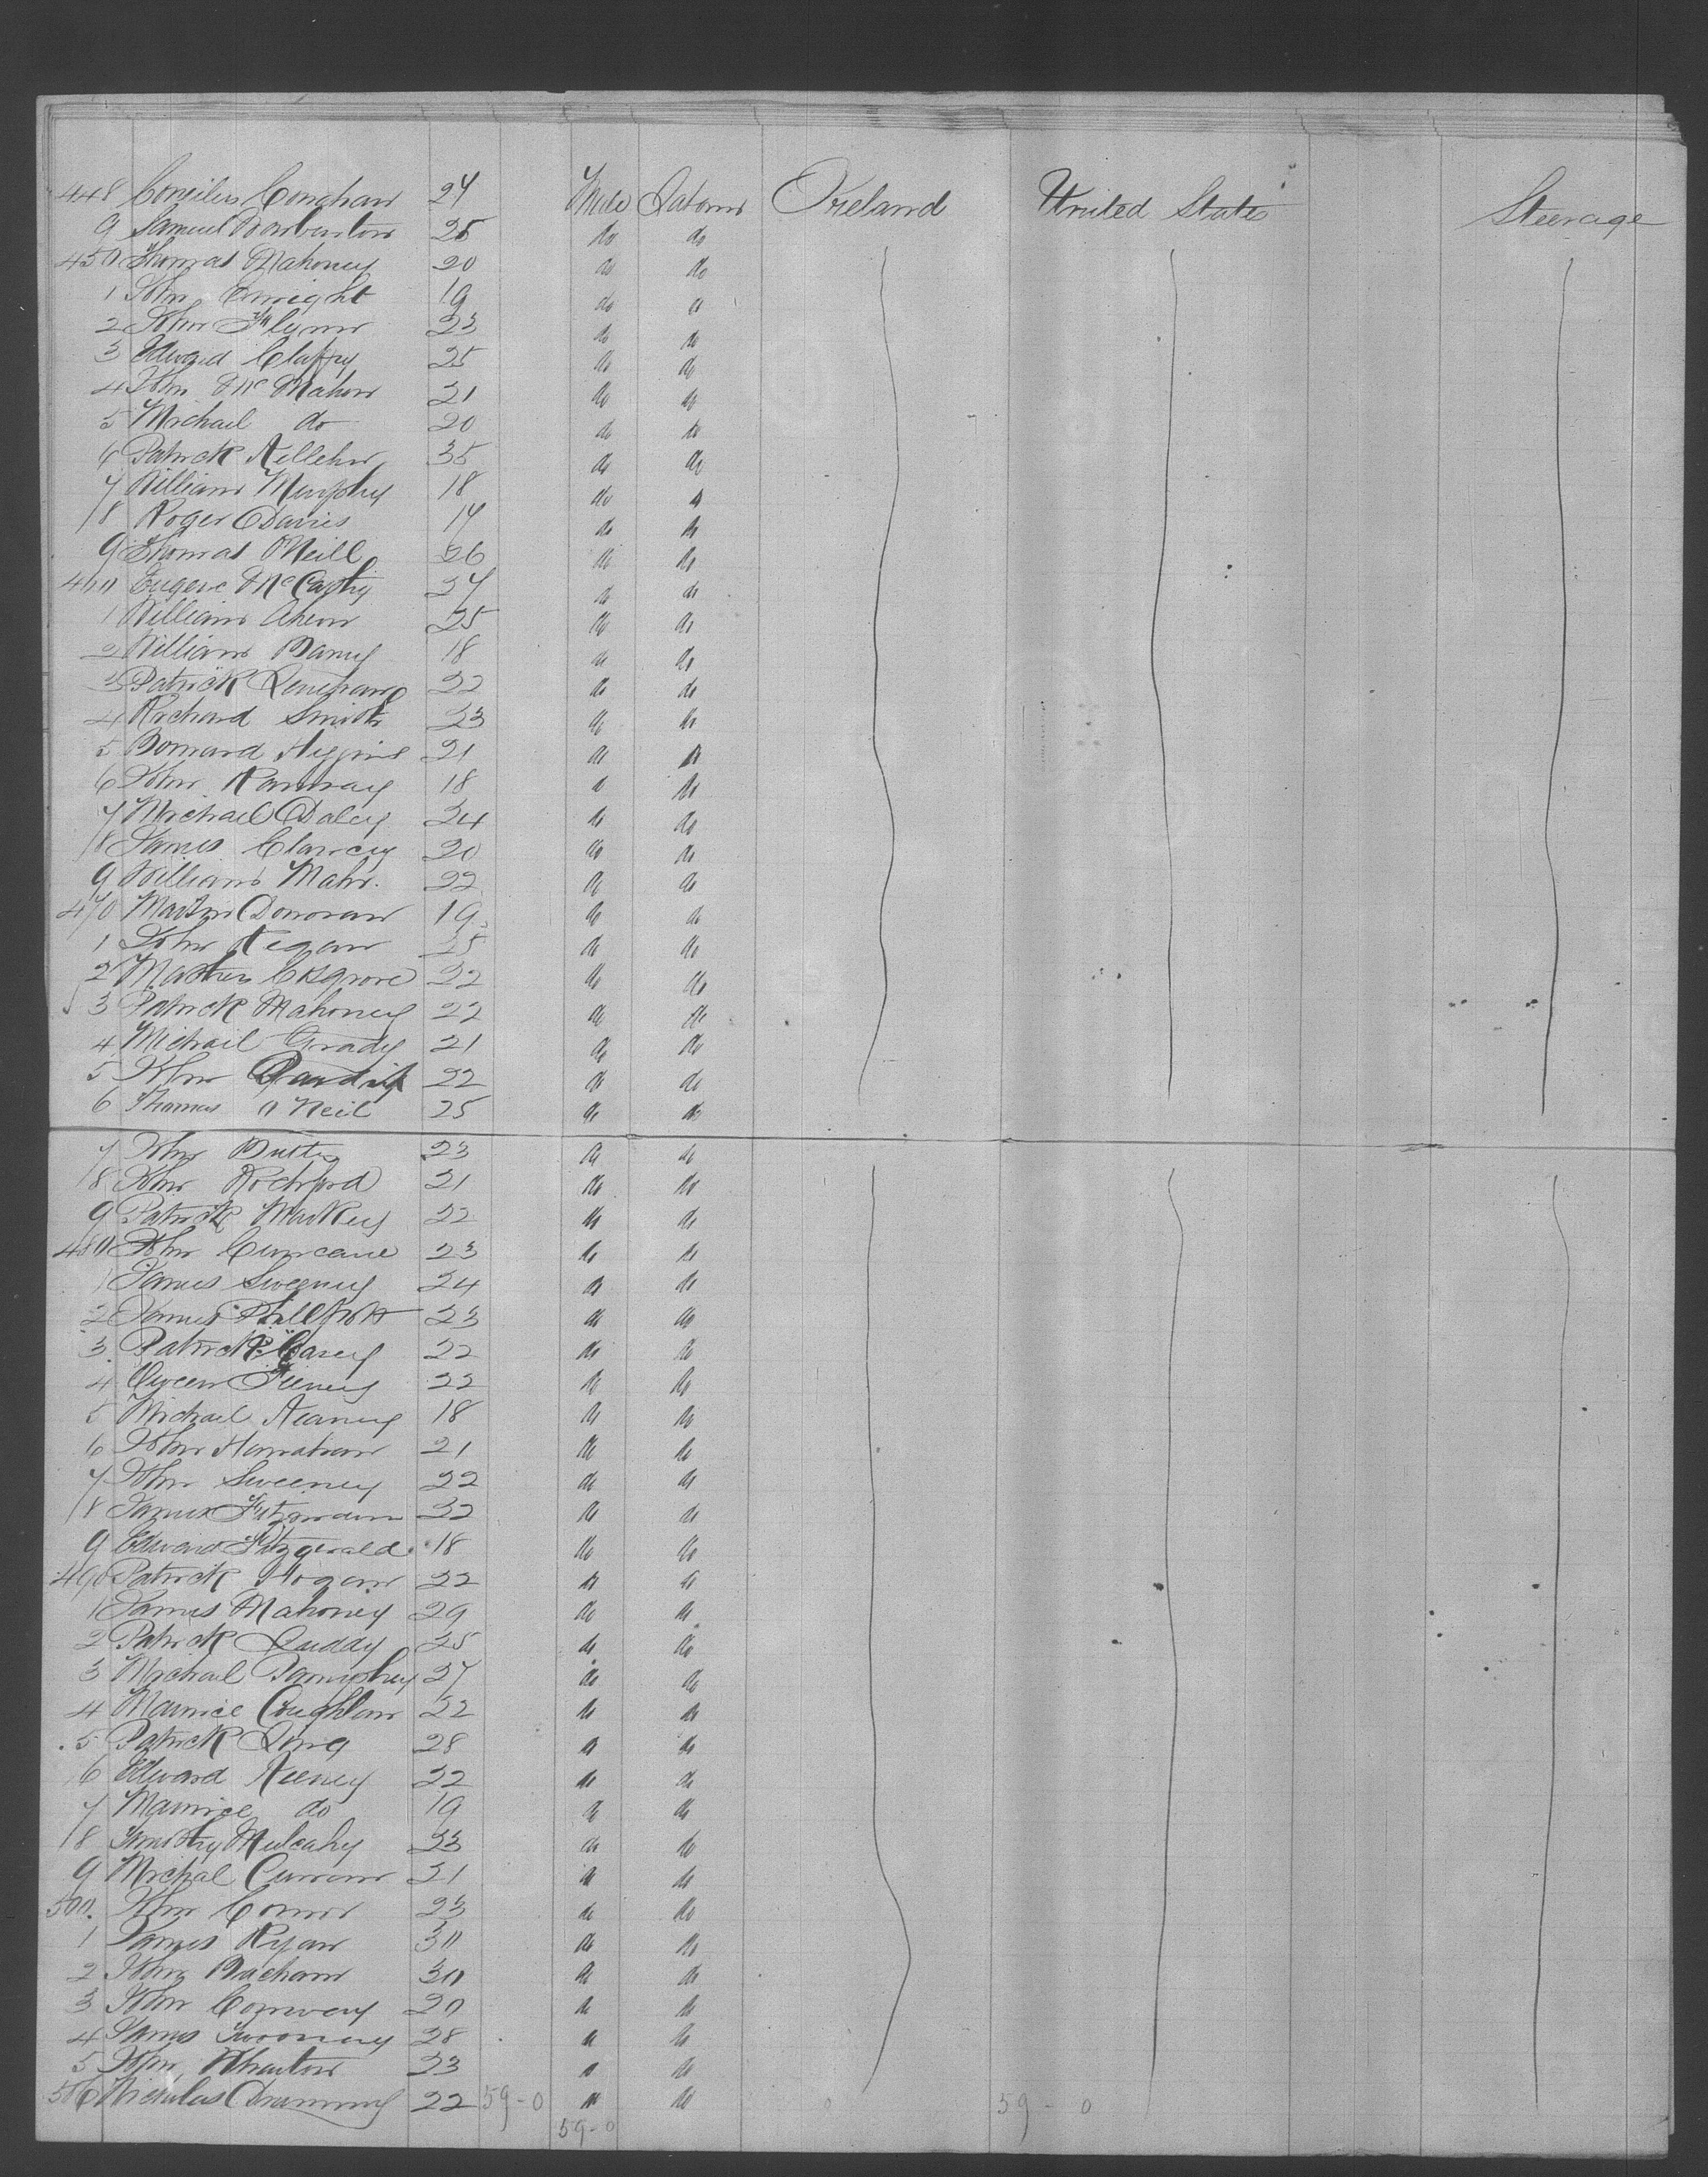 448 Cornilius Conohan 24 Male Labour Ireland United States Steerage
9 Samuel Warburton 25 do do
450 Thomas Mahoney 20 do do
1 John Enright 19 do do
2 John Flynn 23 do do
3 Edward Claffey 25 do do
4 John McMahon 21 do do
5 Michael do 20 do do
6 Patrick Kelleher 35 do do
7 William Murphy 18 do do
8 Roger Davies 17 do do
9 Thomas ONeill 26 do do
460 Eugene McCarthy 27 do do
1 William Ahern 25 do do
2 William Barry 18 do do
3 Patrick Lenehan 22 do do
4 Richard Smith 23 do do
5 Bernard Higgins 21 do do
6 John 18 do do
7 Michael Daley 24 do do
8 James Clancey 20 do do
9 William Mahr. 22 do do
470 Martin Donovan 19 do do
1 John Regan 25 do do
2 Cosgrove 22 do do
3 Patrick Mahoney 22 do do
4 Michail Grady 21 do do
5 John 22 do do
6 Thomas O Neil 25 do do
7 John Butler 23 do do
8 John Rochford 21 do do
9 Patrick Mackey 22 do do
480 John Cuncane 23 do do
1 James Sweeney 24 do do
2 James Phillpott 23 do do
3 Patrick Casey 22 do do
4 Owen Feeney 22 do do
5 Michael Keaney 18 do do
6 John Hanrahan 21 do do
7 John Sweeney 22 do do
8 James 22 do do
9 Edward Fitzgerald 18 do do
490 Patrick Hogan 22 do do
1 James Mahoney 29 do do
2 Patrick Luddy 25 do do
3 Michael 27 do do
4 Maurice Coughlan 22 do do
5 Patrick Long 28 do do
6 Edward Keeney 22 do do
7 Maurice do 19 do do
8 Timothy Mulcahy 23 do do
9 Michal Curran 21 do do
500. John Connor 23 do do
1 James Ryan 30 do do
2 John 30 do do
3 John Conway 20 do do
4 James Twoomey 28 do do
5 John Wharton 23 do do
506 Nicholas Drummy 22 59-0 do do 0 59 - 0
59-0